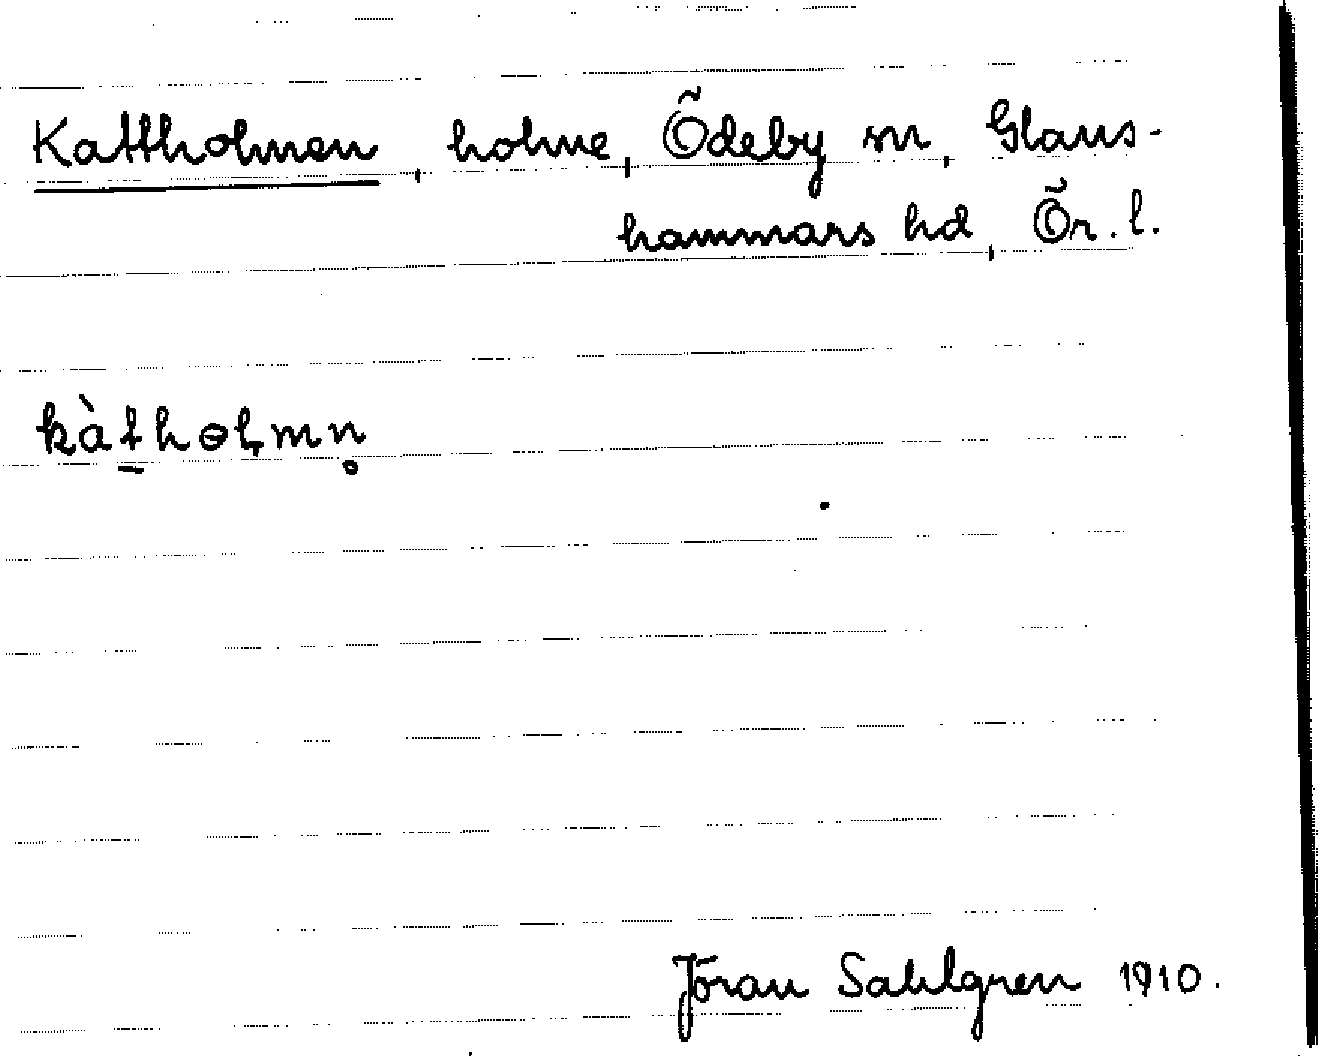 Kattholmen, holme, Ödeby sn, Glans-
hammars hd, Ör. l.
kàt̲hɵḷmn̥
Jöran Sahlgren 1910.